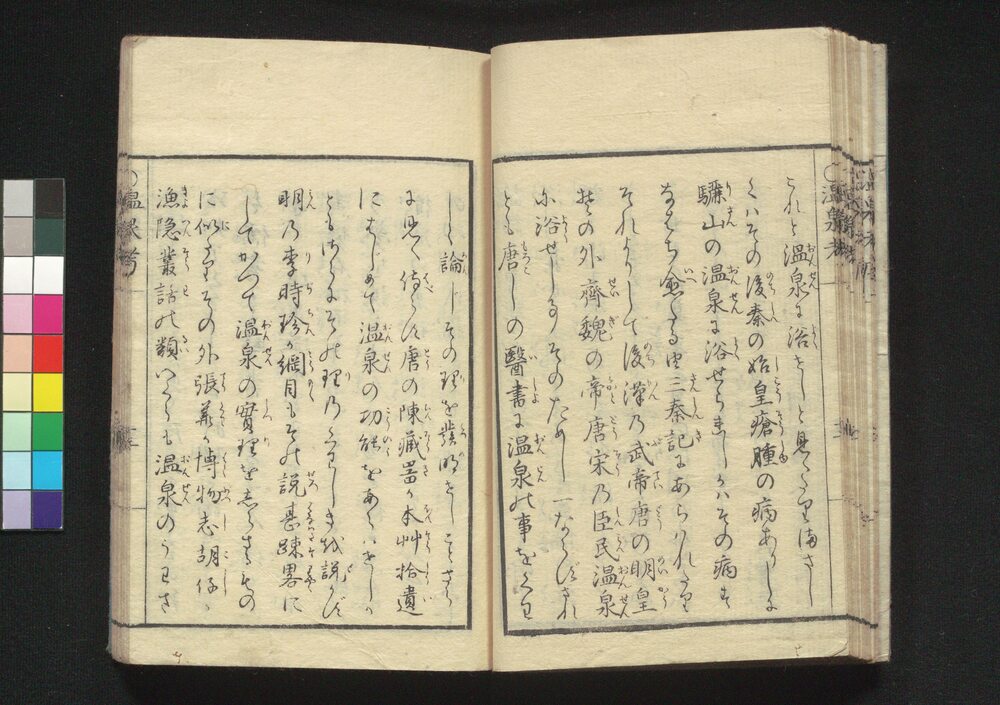 これを温泉に浴せしと見えたりまさし
くハその後秦の始皇瘡腫の病ありしに
驪山の温泉に浴せられしかハその病す
なはち愈たる由三秦記にあらハれたり
それよりして後漢乃武帝唐の明皇
其の外齊魏の帝唐宋乃臣民温泉
に浴せしものそのためし一ならずされ
とも唐しの醫書に温泉の事をくわ
しく論しその理を発明せしことさら
に見え侍らず唐の陳藏器か本艸拾遺
にはしめて温泉の功能をあらハせしか
ともいまたその理乃くわしき処説かず
明乃李時珍か綱目もその説甚踈畧に
してかつて温泉の實理をしらさるもの
に似たりその外張華か博物志胡仔か
漁隐叢話の類いつくも温泉のうわさ
○温泉考
○温泉考